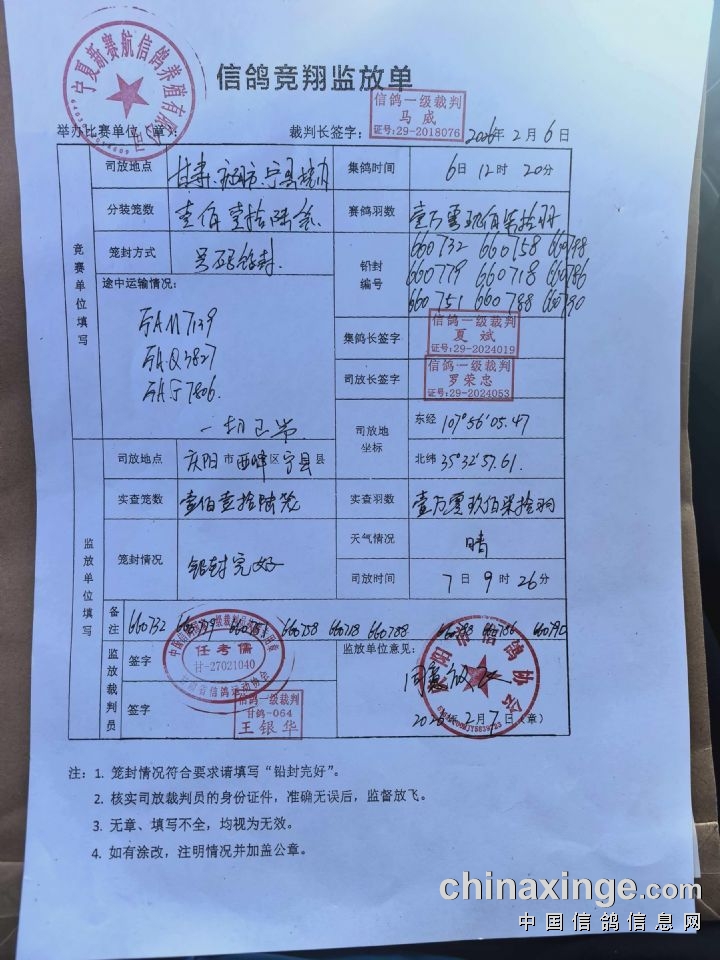 信鸽竞翔监放单
宁夏新赛航信鸽养殖有限公司
举办比赛单位（章）：
裁判长签字：
信鸽一级裁判
马威
证号:29-2018076
2026年2月6日
竞赛单位填写
司放地点
甘肃 庆阳市 宁县
集鸽时间
6日12时20分
分装笼数
壹佰壹拾陆笼
赛鸽羽数
壹万零玖佰柒拾羽
笼封方式
号码铅封
铅封编号
660732 660758 660798
660779 660718 660786
660751 660788 660790
途中运输情况：
一切正常
集鸽长签字
信鸽一级裁判
夏斌
证号:29-2024019
司放长签字
信鸽一级裁判
罗荣忠
证号:29-2024053
司放地坐标
东经 107°56′05.47
北纬 35°32′57.61
监放单位填写
司放地点
庆阳市西峰区宁县县
实查笼数
壹佰壹拾陆笼
实查羽数
壹万零玖佰柒拾羽
笼封情况
铅封完好
天气情况
晴
司放时间
7日9时26分
备注
660732 660779 660751 660758 660718 660788 660798 660786 660790
监放裁判员
签字
任考儒
甘-27021040
甘肃省信鸽运动协会
签字
信鸽一级裁判
甘鸽-064
王银华
监放单位意见：
同意放飞
庆阳市信鸽协会
2026年2月7日（章）
注：1. 笼封情况符合要求请填写“铅封完好”。
2. 核实司放裁判员的身份证件，准确无误后，监督放飞。
3. 无章、填写不全，均视为无效。
4. 如有涂改，注明情况并加盖公章。
chinaxinge.com
中国信鸽信息网